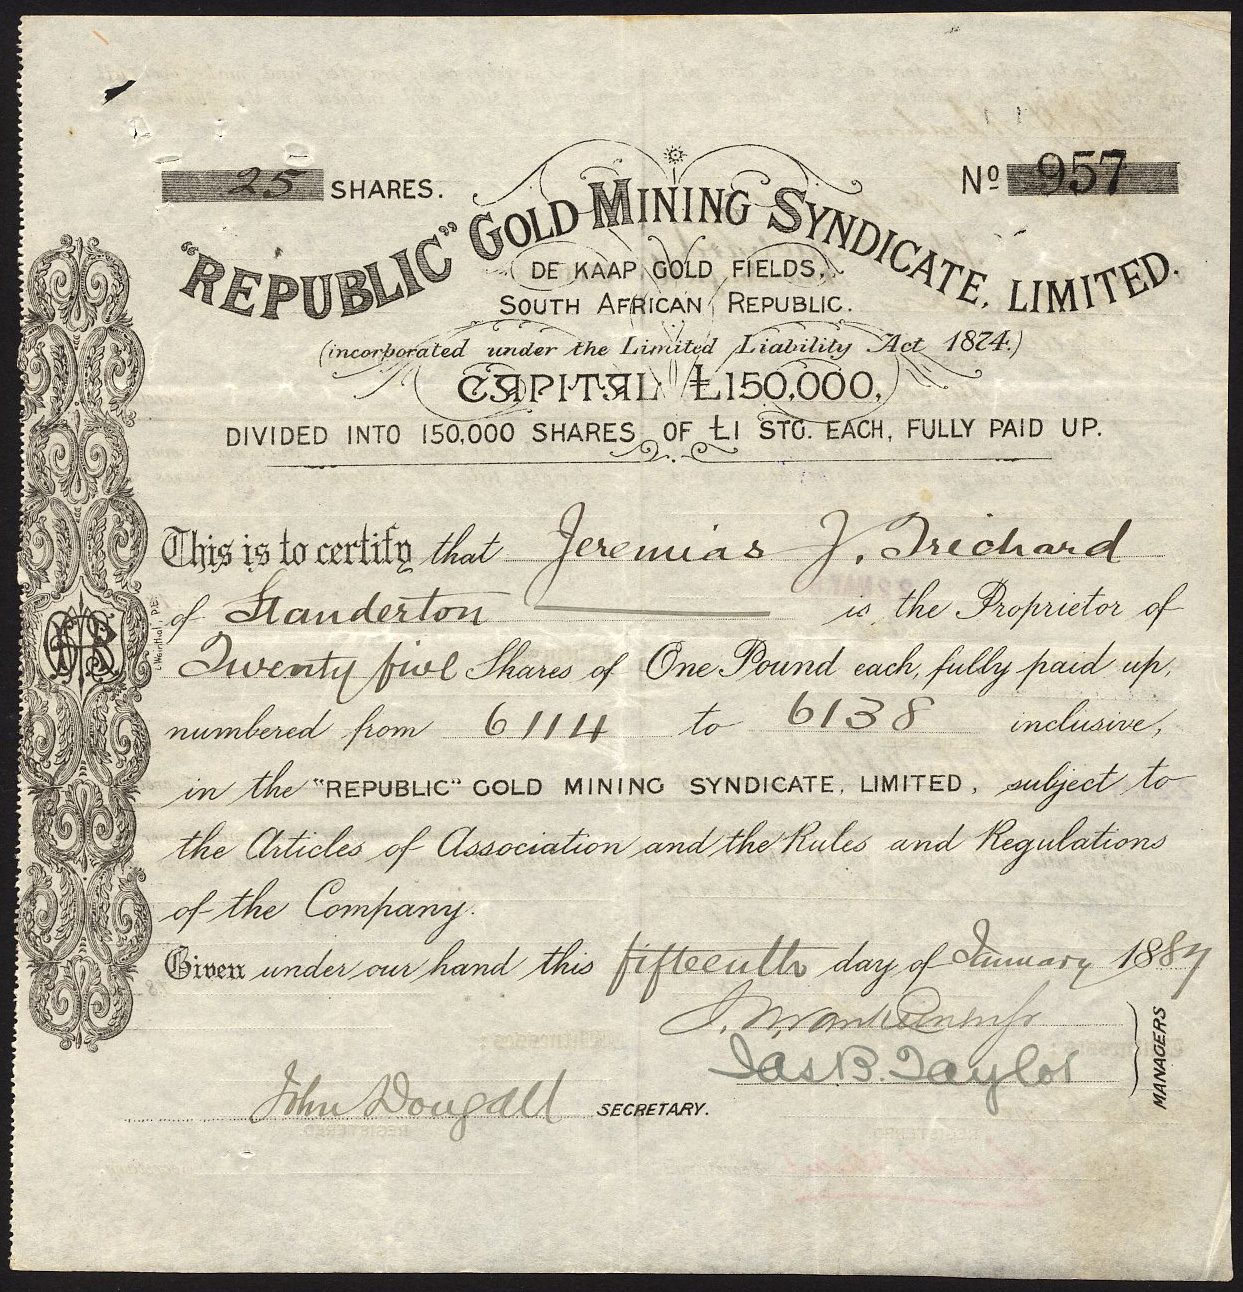 25 SHARES.
Nº 957
"REPUBLIC" GOLD MINING SYNDICATE, LIMITED.
DE KAAP GOLD FIELDS,
SOUTH AFRICAN REPUBLIC.
(incorporated under the Limited Liability Act 1874.)
CAPITAL £150,000,
DIVIDED INTO 150,000 SHARES OF £1 STG. EACH, FULLY PAID UP.
This is to certify that Jeremias J. Trichard
of Standerton is the Proprietor of
Twenty five Shares of One Pound each, fully paid up,
numbered from 6114 to 6138 inclusive,
in the "REPUBLIC" GOLD MINING SYNDICATE, LIMITED, subject to
the Articles of Association and the Rules and Regulations
of the Company.
Given under our hand this fifteenth day of January 1887
Jas. B. Taylor
MANAGERS
John Dougall SECRETARY.